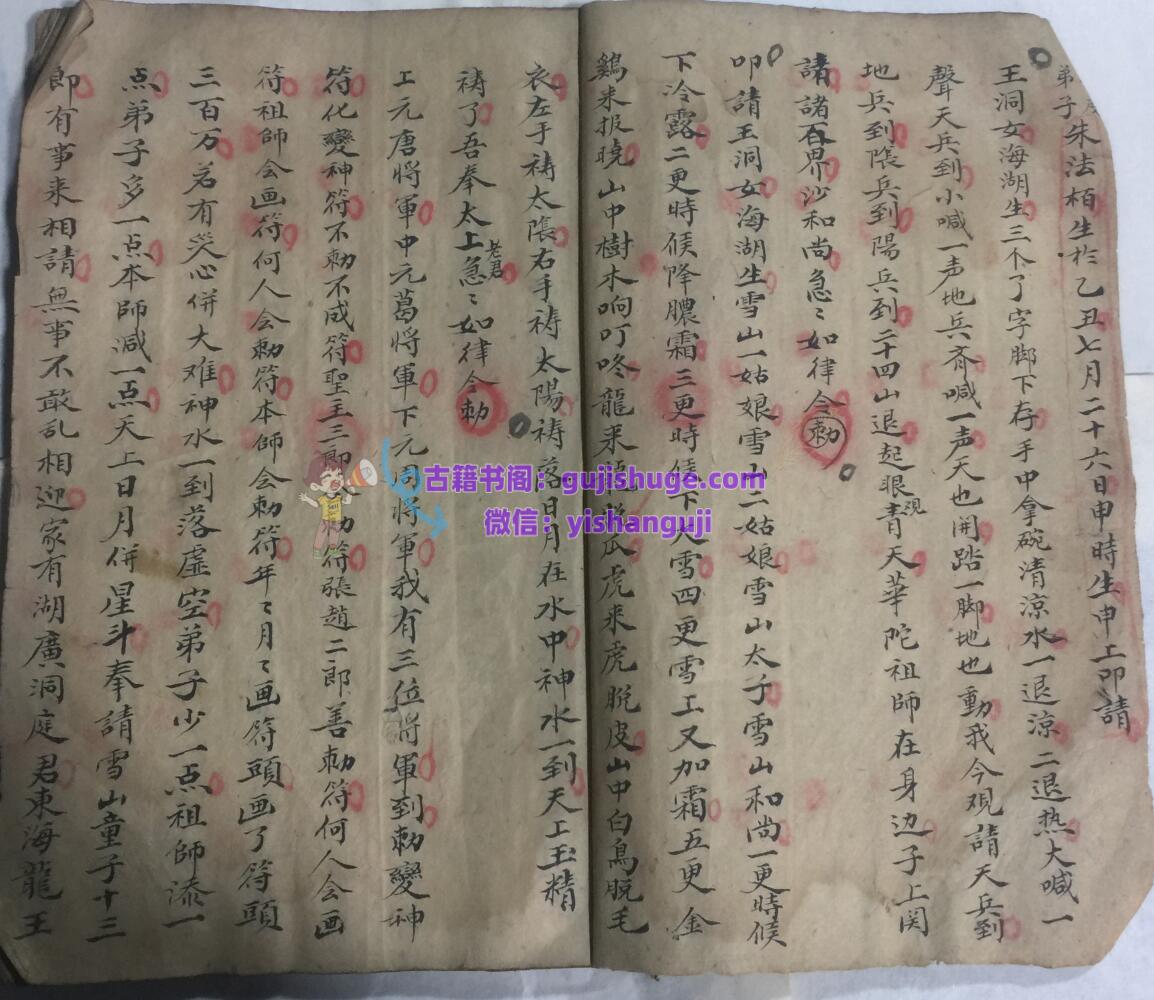 弟子朱法栢生於乙丑七月二十六日申時生申上叩請
王洞女海湖生三个了字脚下存手中拿碗清凉水一退凉二退热大喊一
聲天兵到小喊一声地兵齐喊一声天也開踏一脚地也動我今观請天兵到
地兵到陰兵到陽兵到二十四山退起眼観青天華陀祖師在身边子上関
請諸百界沙和尚急〻如律令勅
叩請王洞女海湖生雪山一姑娘雪山二姑娘雪山太子雪山和尚一更時候
下冷露二更時候降膿霜三更時候下大雪四更雪上又加霜五更金
鷄来报曉山中樹木响叮咚龍来龍脱爪虎来虎脱皮山中白鳥脱毛
衣左手祷太陰右手祷太陽祷落日月在水中神水一到天上玉精
祷了吾奉太上老君急〻如律令勅
上元唐將軍中元葛將軍下元周將軍我有三位將軍到勅變神
符化變神符不勅不成符聖主三郎勅符張趙二郎善勅符何人会画
符祖師会画符何人会勅符本師会勅符年〻月〻画符頭画了符頭
三百万若有災心併大难神水一到落虚空弟子少一点祖師添一
点弟子多一点本師減一点天上日月併星斗奉請雪山童子十三
郎有事来相請無事不敢乱相迎家有湖廣洞庭君東海龍王
古籍书阁：gujishuge.com
微信：yishanguji